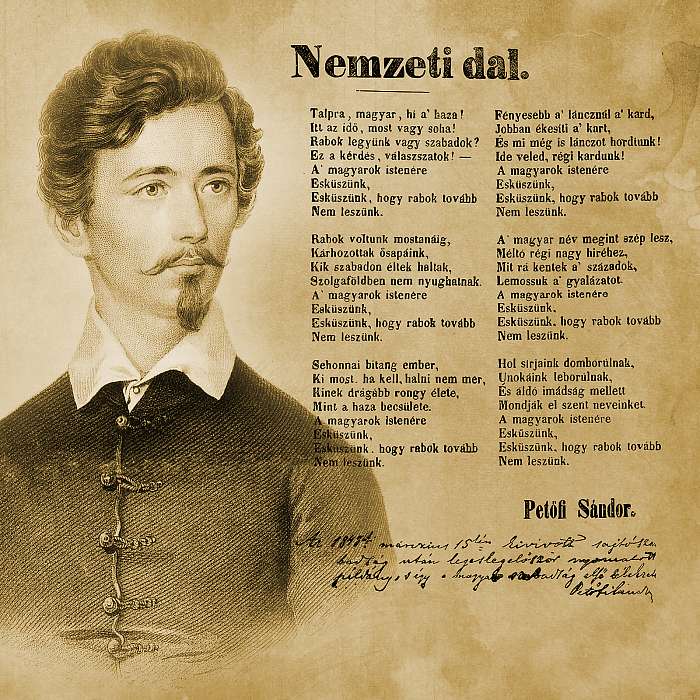 Nemzeti dal.
Talpra, magyar, hi a' haza!
Itt az idő, most vagy soha!
Rabok legyünk vagy szabadok?
Ez a kérdés, válaszszatok! —
A' magyarok istenére
Esküszünk,
Esküszünk, hogy rabok tovább
Nem leszünk.
Rabok voltunk mostanáig,
Kárhozottak ősapáink,
Kik szabadon éltek haltak,
Szolgaföldben nem nyughatnak.
A' magyarok istenére
Esküszünk,
Esküszünk, hogy rabok tovább
Nem leszünk.
Sehonnai bitang ember,
Ki most, ha kell, halni nem mer,
Kinek drágább rongy élete,
Mint a haza becsülete.
A magyarok istenére
Esküszünk,
Esküszünk, hogy rabok tovább
Nem leszünk.
Fényesebb a' láncznál a' kard,
Jobban ékesíti a' kart,
És mi még is lánczot hordtunk!
Ide veled, régi kardunk!
A magyarok istenére
Esküszünk,
Esküszünk, hogy rabok tovább
Nem leszünk.
A' magyar név megint szép lesz,
Méltó régi nagy hiréhez,
Mit rá kentek a' századok,
Lemossuk a' gyalázatot.
A magyarok istenére
Esküszünk,
Esküszünk, hogy rabok tovább
Nem leszünk.
Hol sirjaink domborulnak,
Unokáink leborulnak,
És áldó imádság mellett
Mondják el szent neveinket.
A magyarok istenére
Esküszünk,
Esküszünk, hogy rabok tovább
Nem leszünk.
Petőfi Sándor.
Az 1848 márczius 15kén kivivott sajtósza
badság után legeslegelőször nyomatott
példány, s így a magyar szabadság első
Petőfi Sándor